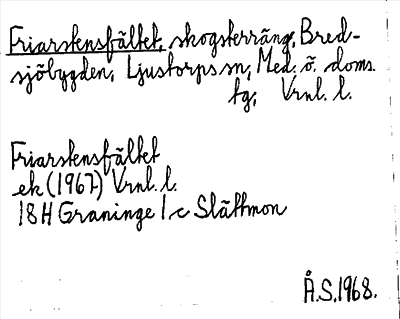 Friarstensfältet, skogsterräng, Bred-
sjöbygden, Ljustorps sn, Med. ö. doms.
tg, Vrnl. l.
Friarstensfältet
ek (1967) Vrnl. l.
18H Graninge 1 c Slättmon
Å.S. 1968.